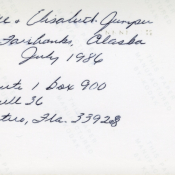 & Elisabeth Jumper
Fairbanks, Alaska
July 1986
1 Box 900
36
Fla. 33928